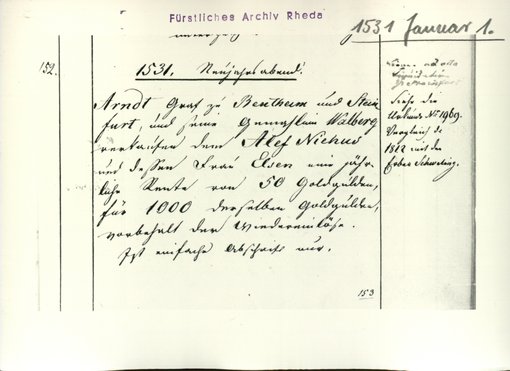 Fürstliches Archiv Rheda
1531 Januar 1.
152.
1531. Neujahrsabend.
Arndt Graf zu Bentheim und Stein
furt, und seine Gemahlin Walberg
verkaufen dem Alef Niehus
und dessen Frau Elsen eine jähr-
liche Rente von 50 Goldgülden,
für 1000 derselben Goldgülden,
vorbehalt der Wiedereinlöse.
Ist einfache Abschrift nur.
Siehe die
Urkunde No 1969.
Vergleich de
1812 mit den
Erben Schorling.
153